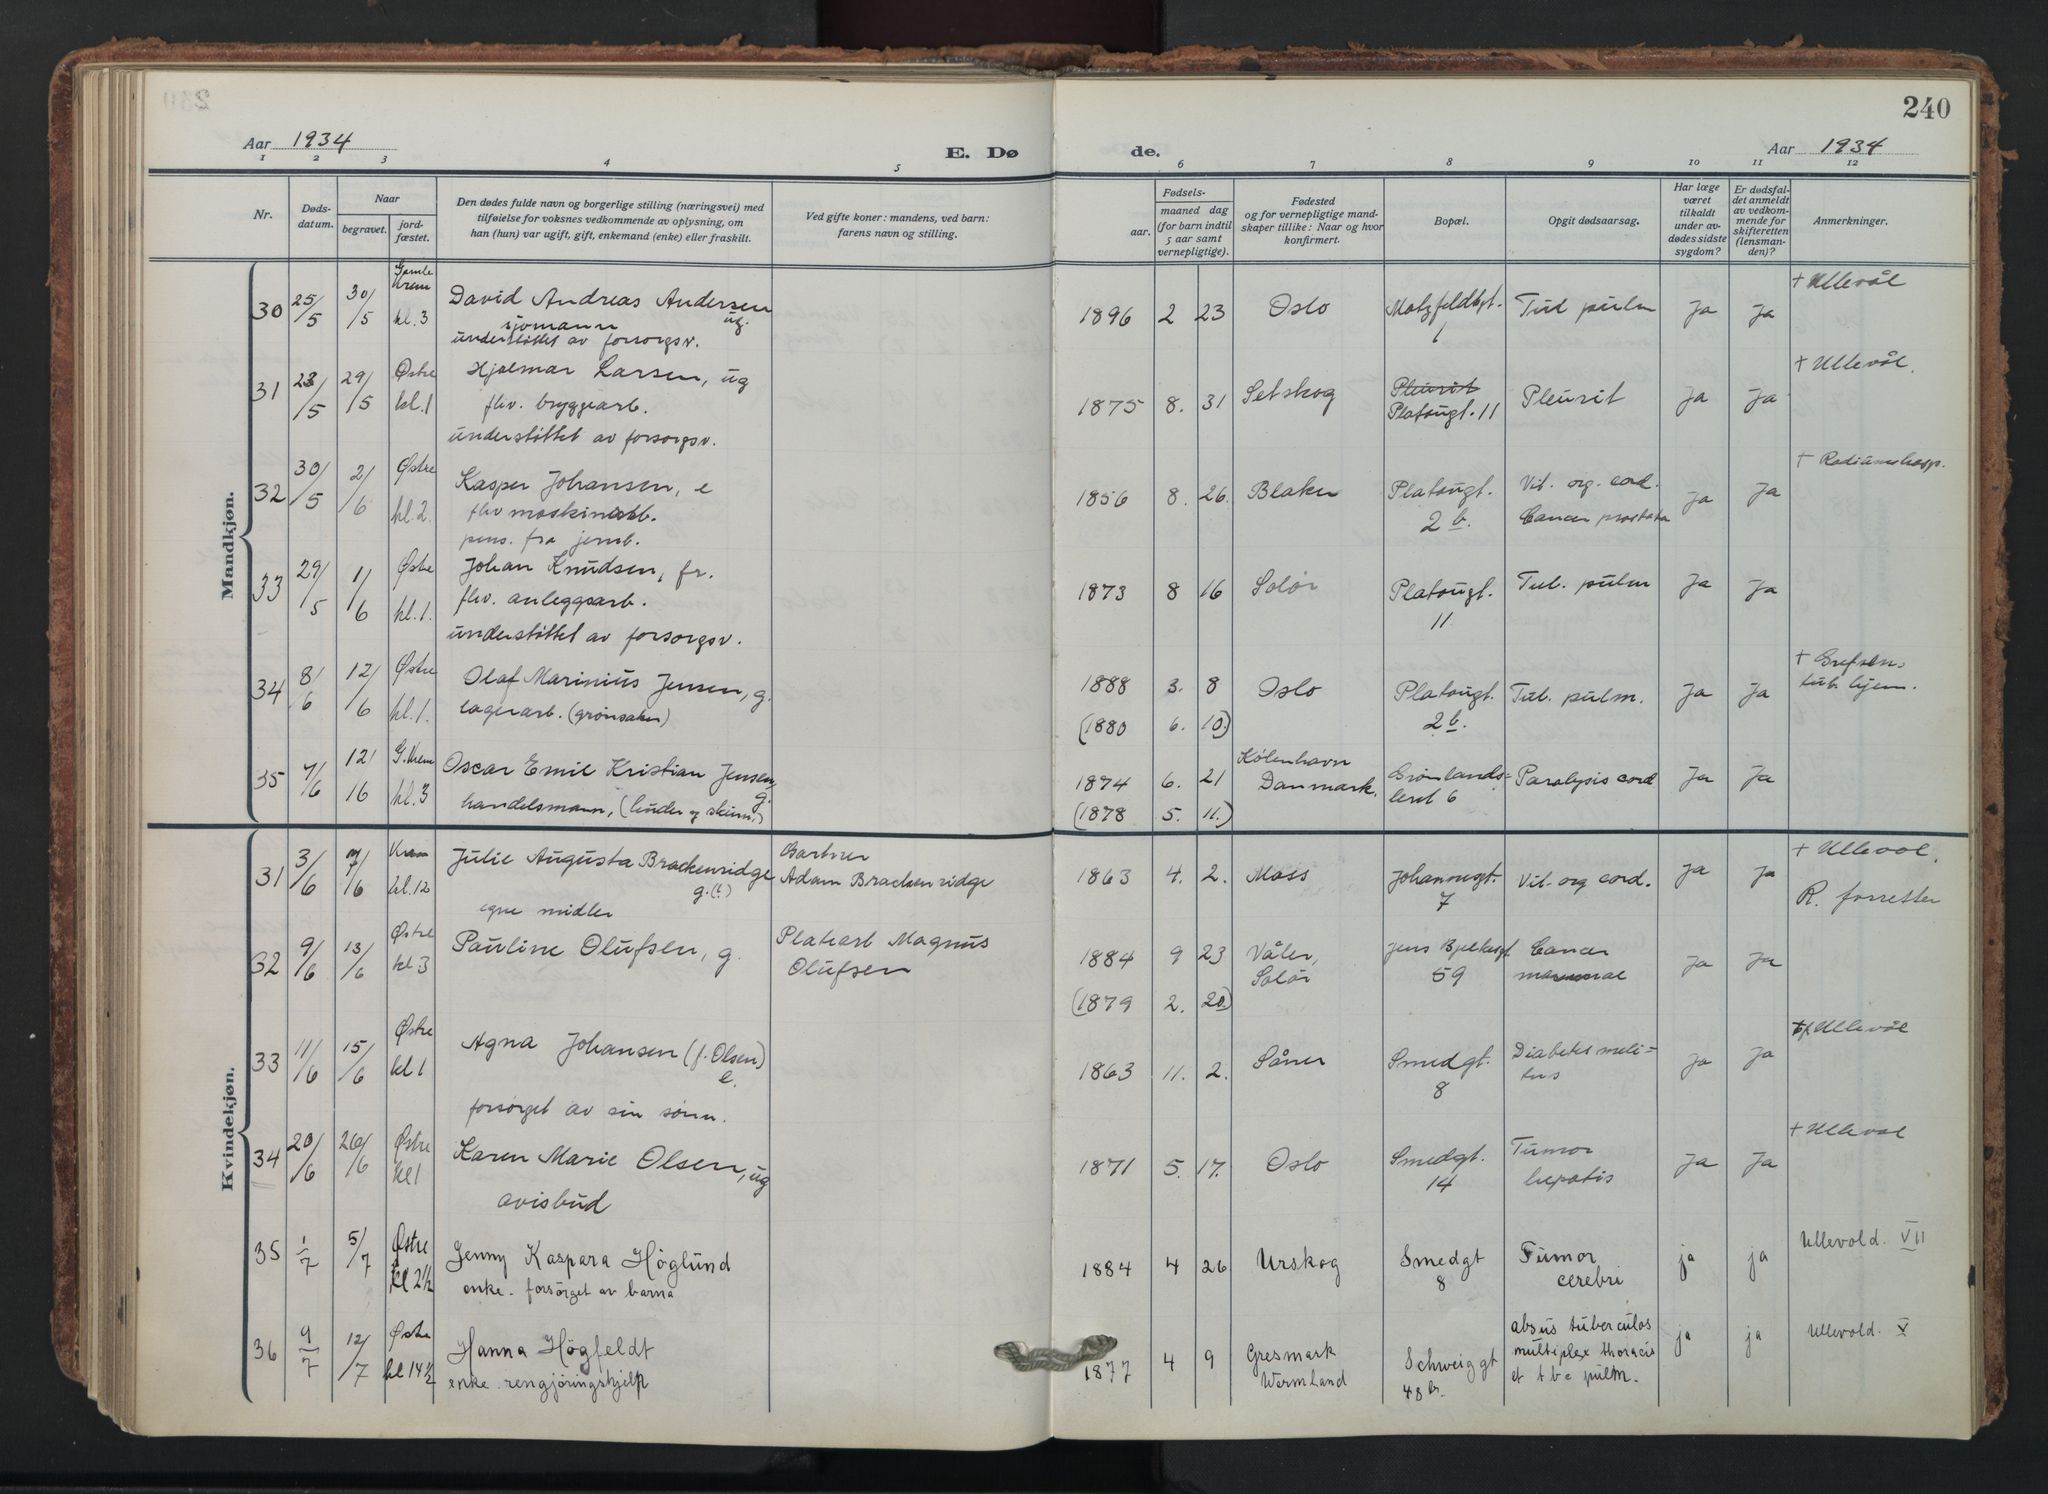 240
Aar 1934
E. Dø
de.
Aar 1934
1 2 3 4 5 6 7 8 9 10 11 12
Nr.
Døds-
datum.
Naar
begravet.
jord-
fæstet.
Den dødes fulde navn og borgerlige stilling (næringsvei) med
tilføielse for voksnes vedkommende av oplysning, om
han (hun) var ugift, gift, enkemand (enke) eller fraskilt.
Ved gifte koner: mandens, ved barn:
farens navn og stilling.
Fødsels-
aar.
maaned dag
(for barn indtil
5 aar samt
vernepligtige).
Fødested
og for vernepligtige mand-
skaper tillike: Naar og hvor
konfirmert.
Bopæl.
Opgit dødsaarsag.
Har læge
været
tilkaldt
under av-
dødes sidste
sygdom?
Er dødsfal-
det anmeldt
av vedkom-
mende for
skifteretten
(lensman-
den)?
Anmerkninger.
Mandkjøn.
30 25/5 30/5 Gamle Krem kl. 3
David Andreas Andersen
ug.
sjømann
understöttet av forsorgsv.
1896 2 23 Oslo Motzfeldtsgt. 1 Tub pulm Ja Ja + Ullevål
31 23/5 29/5 Østre kl. 1
Hjalmar Larsen, ug
flv. bryggearb.
understöttet av forsorgsv.
1875 8. 31 Setskog Pleurit Platougt. 11 Pleurit Ja Ja + Ullevål.
32 30/5 2/6 Østre kl. 2.
Kasper Johansen, e
flv maskinarb.
pens. fra jernb.
1856 8. 26. Blaker Platougt. 2 b. Vit. org. cord. Cancer prostata Ja Ja + Radiumshosp.
33 29/5 1/6 Østre kl. 1.
Johan Knudsen, fr.
flv. anleggsarb.
understöttet av forsorgsv.
1873 8 16 Solör Platougt. 11 Tub. pulm Ja Ja
34 8/6 12/6 Østre kl. 1.
Olaf Marinius Jensen, g.
lagerarb. (grönsaker)
1888 3. 8 Oslo Platougt. 2 b. Tub. pulm. Ja Ja + Grefsen. tub. hjem.
(1880 6. 10.)
35 7/6 12/6 G. Krem kl. 3
Oscar Emil Kristian Jensen,
g.
handelsmann, (huder og skinn.)
1874 6. 21 København Danmark. Grönlands-leret 6 Paralysis cord Ja Ja
(1878 5. 11.)
Kvindekjøn.
31 3/6 7/6 Krem kl. 12
Julie Augusta Brackenridge
g. (?)
egne midler
Gartner
Adam Brackenridge
1863 4. 2. Moss Johannesgt. 7 Vit. org cord. Ja Ja + Ullevål. R. forretter
32 9/6 13/6 Østre kl 3
Pauline Olufsen, g.
Platearb Magnus
Olufsen
1884 9 23 Våler, Solör Jens Bjelkesgt 59 Cancer mammae Ja Ja
(1879 2. 20.)
33 11/6 15/6 Østre kl 1
Agna Johansen (f. Olsen)
e.
forsörget av sin sönn.
1863 11. 2. Såner Smedgt. 8 Diabetes meli-tus Ja Ja Ullevål
34 20/6 26/6 Østre kl 1
Karen Marie Olsen, ug
avisbud
1871 5. 17. Oslo Smedgt. 14 Tumor hepatis Ja Ja + Ullevål
35 1/7 5/7 Østre kl 2½
Jenny Kaspara Höglund
enke. forsörget av barna
1884 4 26 Urskog Smedgt 8 Tumor cerebri ja ja Ullevold. VII
36 9/7 12/7 Østre kl 14½
Hanna Högfeldt
enke. rengjöringshjelp
1877 4 9 Gresmark Wermland Schweiggt 48 br. absus tuberculos multiplex thoracis et t b c pulm. ja ja Ullevold. V